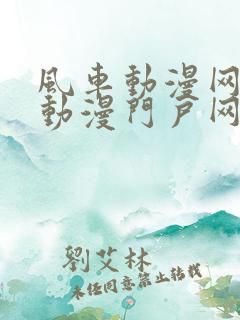 風車動漫网
動漫門戶网
劉艾林
未经同意禁止转载